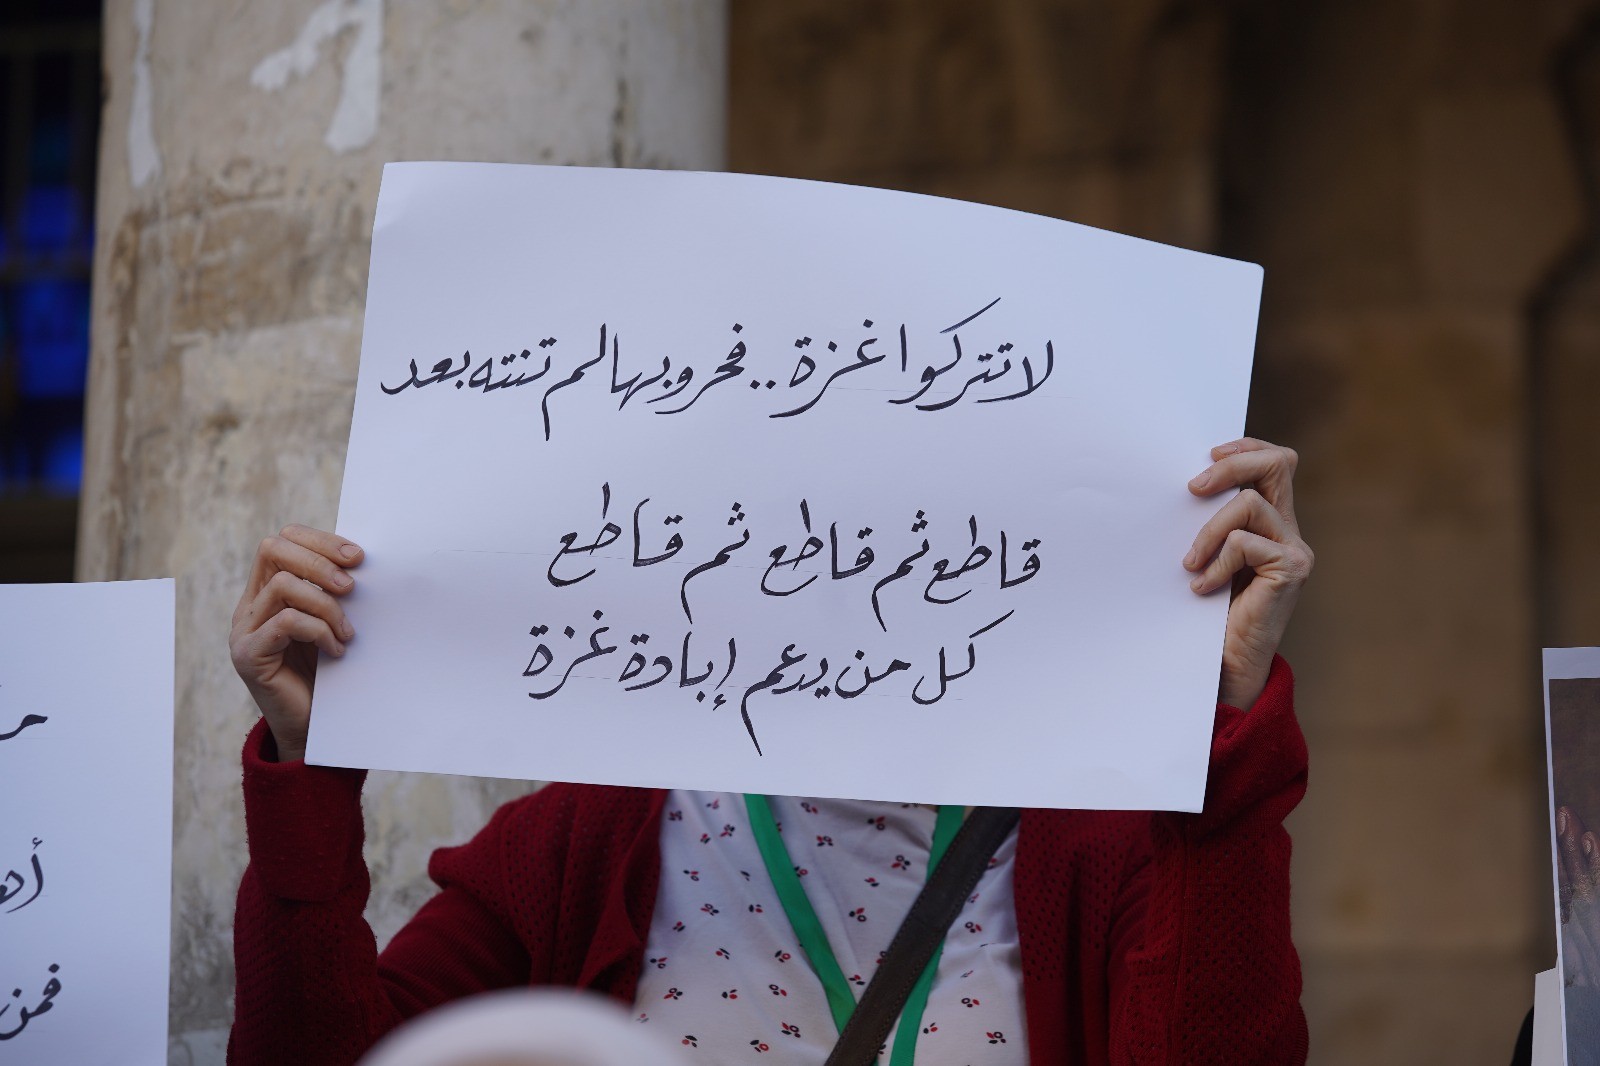 لا تتركوا غزة.. فحروبها لم تنته بعد
قاطع ثم قاطع ثم قاطع
كل من يدعم إبادة غزة
فمن